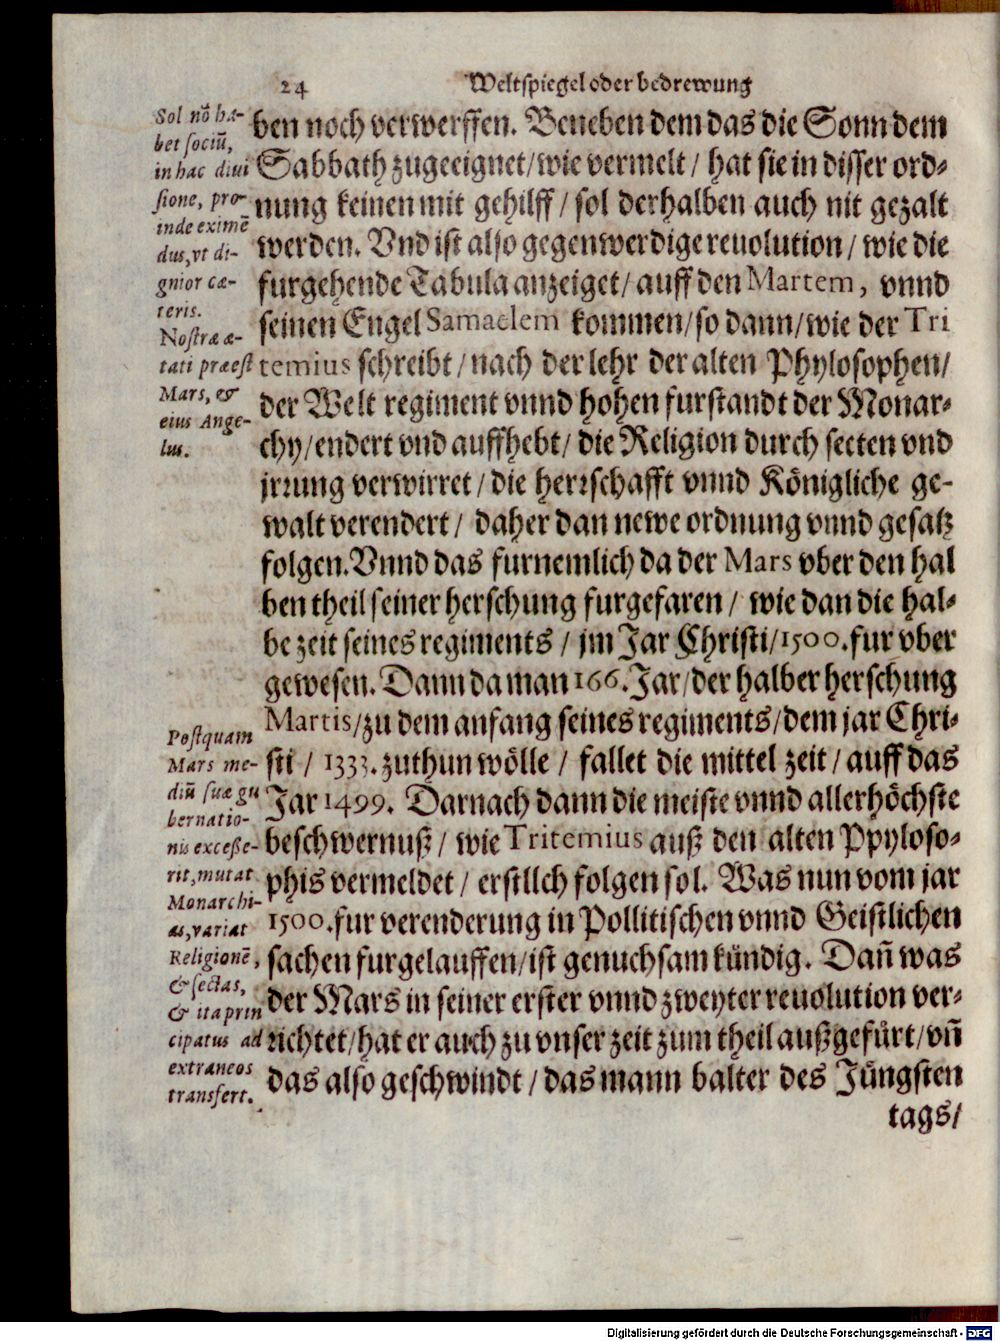 24 Weltspiegel oder bedrewung
Sol nō ha-
bet sociū,
in hac diui
sione, pro-
inde eximē
dus, vt di-
gnior cæ-
teris.
Nostræ æ-
tati præest
Mars, &
eius Ange-
lus.
ben noch verwerffen. Beneben dem das die Sonn dem
Sabbath zugeeignet/wie vermelt/ hat sie in disser ord-
nung keinen mit gehilff/ sol derhalben auch nit gezalt
werden. Vnd ist also gegenwerdige reuolution/ wie die
furgehende Tabula anzeiget/ auff den Martem, vnnd
seinen Engel Samaelem kommen/so dann/wie der Tri
temius schreibt/nach der lehr der alten Phylosophen/
der Welt regiment vnnd hohen furstandt der Monar-
chy/endert vnd auffhebt/ die Religion durch secten vnd
jrrung verwirret/die herrschafft vnnd Königliche ge-
walt verendert/ daher dan newe ordnung vnnd gesatz
folgen.Vnnd das furnemlich da der Mars vber den hal
ben theil seiner herschung furgefaren/ wie dan die hal-
be zeit seines regiments/ jm Jar Christi/1500.fur vber
gewesen. Dann da man 166.Jar/der halber herschung
Martis/zu dem anfang seines regiments/dem jar Chri-
sti/ 1333.zuthun wölle/ fallet die mittel zeit/auff das
Jar 1499. Darnach dann die meiste vnnd allerhöchste
beschwernuß/ wie Tritemius auß den alten Ppyloso-
phis vermeldet/ erstlich folgen sol. Was nun vom jar
1500.fur verenderung in Pollitischen vnnd Geistlichen
sachen furgelauffen/ist genuchsam kündig. Dañ was
der Mars in seiner erster vnnd zweyter reuolution ver-
richtet/hat er auch zu vnser zeit zum theil außgefürt/vñ
das also geschwindt/das mann balter des Jüngsten
tags/
Postquam
Mars me-
diū suæ gu
bernatio-
nis exceße-
rit, mutat
Monarchi-
as, variat
Religionē,
& sectas,
& ita prin
cipatus ad
extraneos
transfert.
Digitalisierung gefördert durch die Deutsche Forschungsgemeinschaft - DFG